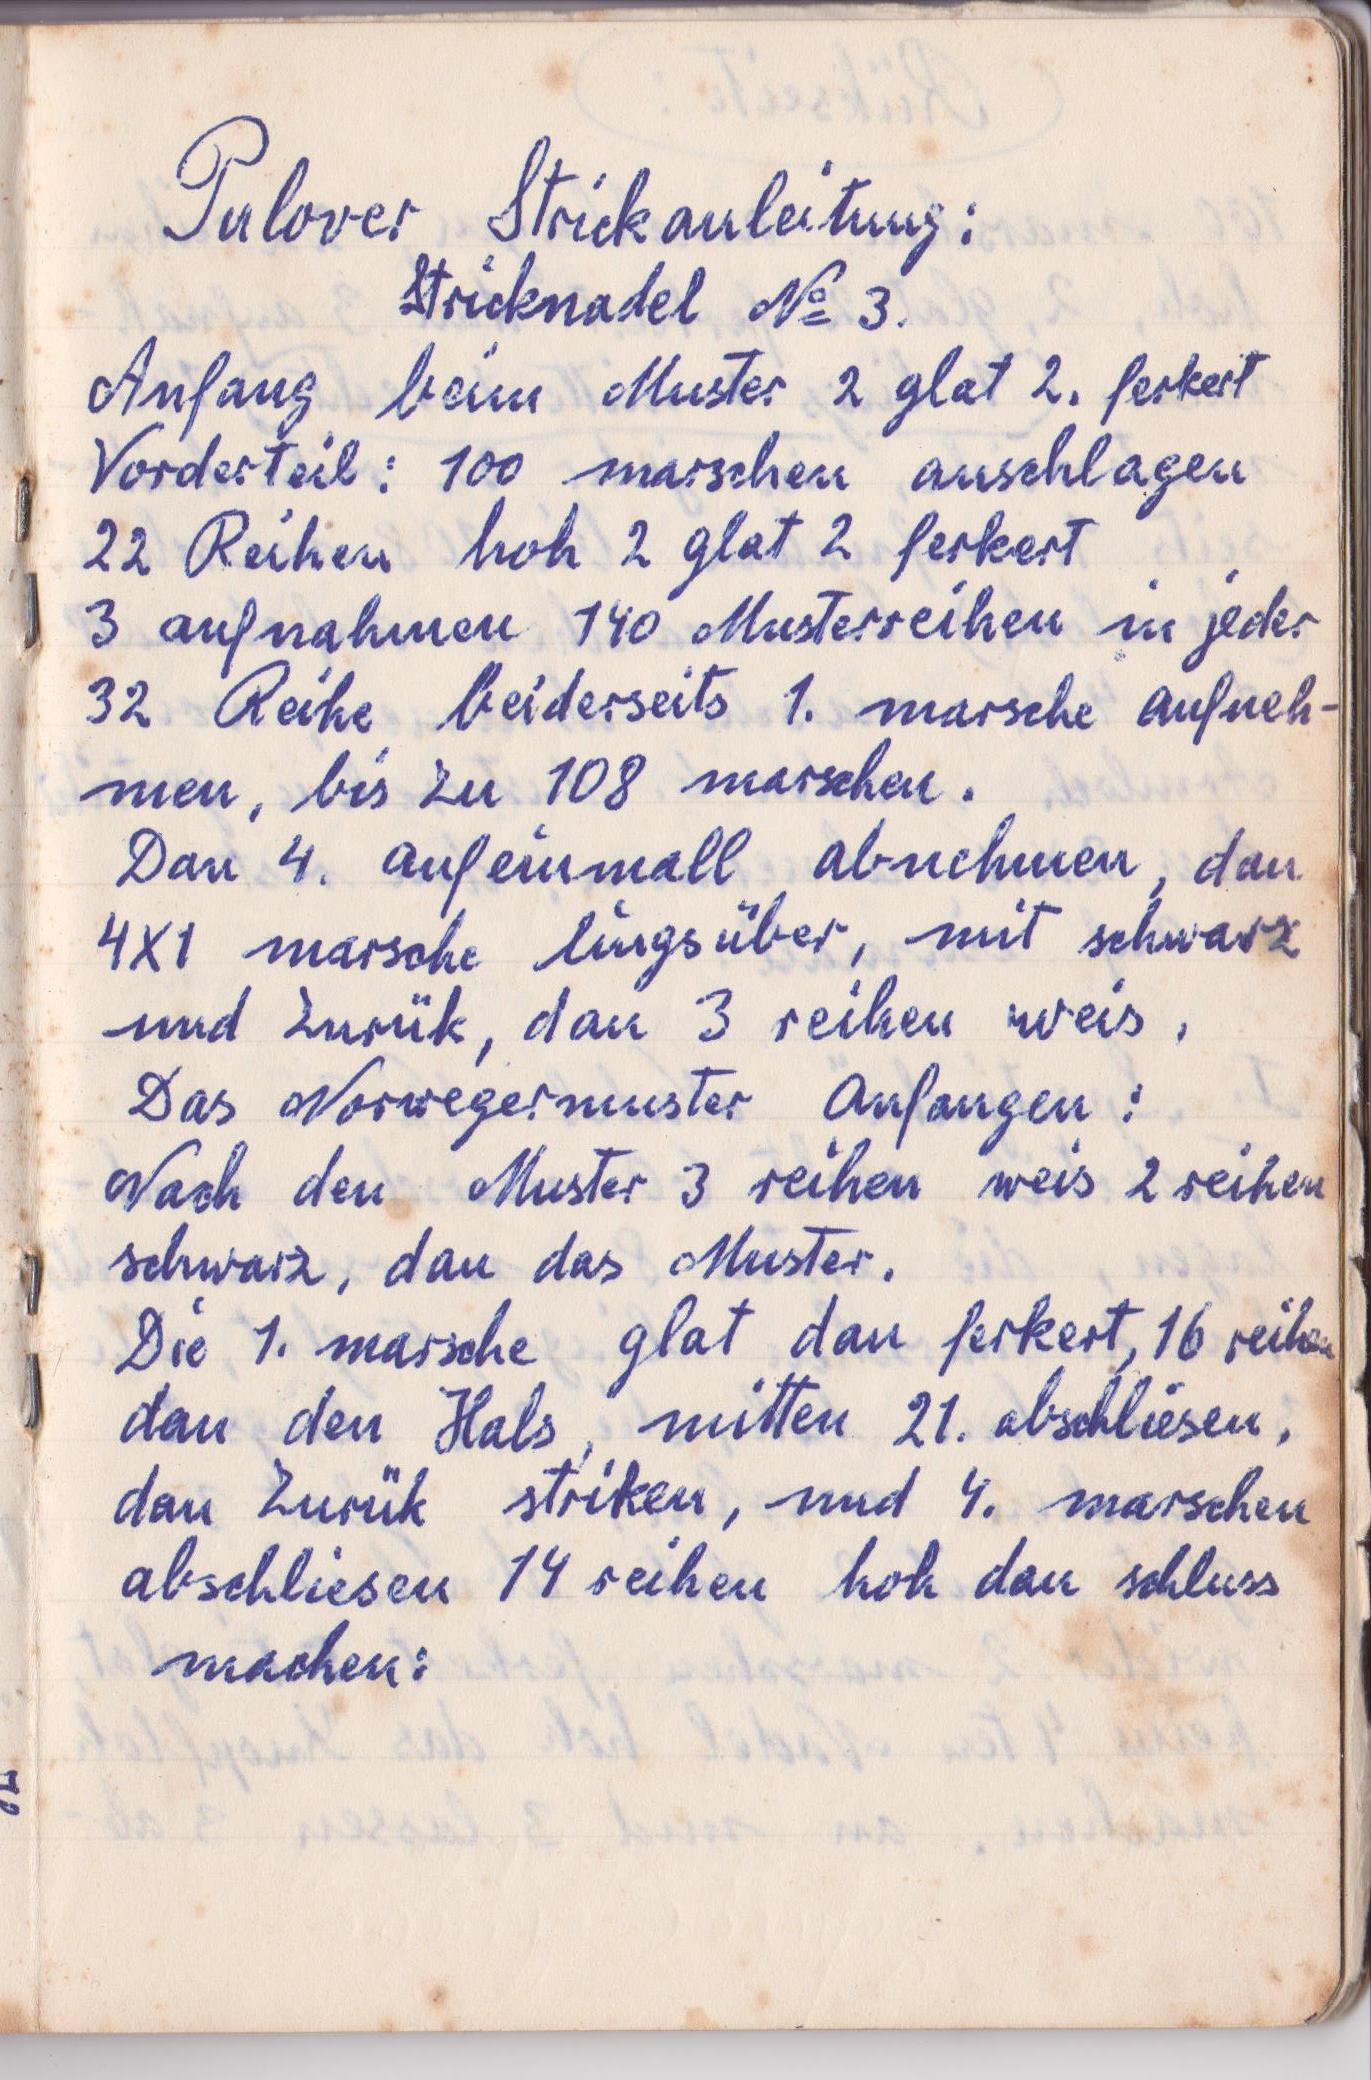 Pulover Strickanleitung:
Stricknadel № 3.
Anfang beim Muster 2 glat 2. ferkert
Vorderteil: 100 marschen anschlagen
22 Reihen hoh 2 glat 2 ferkert
3 aufnahmen 140 Musterreihen in jeder
32 Reihe beiderseits 1. marsche aufneh-
men, bis zu 108 marschen.
Dan 4. aufeinmall abnehmen, dan
4X1 marsche lingsüber, mit schwarz
und zurük, dan 3 reihen weis,
Das Norwegermuster anfangen:
Nach den Muster 3 reihen weis 2 reihen
schwarz, dan das Muster.
Die 1. marsche glat dan ferkert, 16 reihen
dan den Hals, mitten 21. abschliesen,
dan zurük striken, und 4. marschen
abschliesen 14 reihen hoh dan schluss
machen: